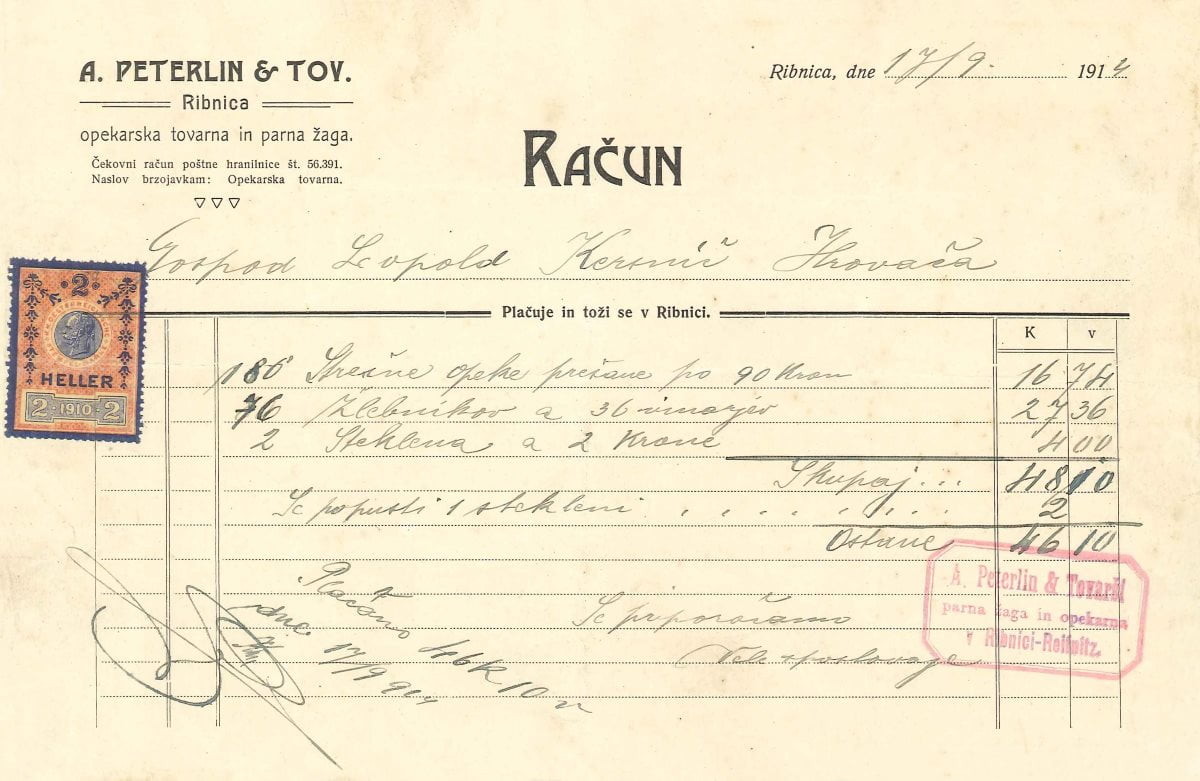 A. PETERLIN & TOV.
Ribnica
opekarska tovarna in parna žaga.
Čekovni račun poštne hranilnice št. 56.391.
Naslov brzojavkam: Opekarska tovarna.
Ribnica, dne 17/9. 1914
RAČUN
Gospod Leopold Kersnič Hrovača
2
HELLER
2 · 1910 · 2
Plačuje in toži se v Ribnici.
K v
186 Strešne opeke prešane po 90 Kron 16 74
76 Žlebnikov a 36 vinarjev 27 36
2 Steklena a 2 Krone 4 00
Skupaj... 48 10
Se popusti 1 stekleni . . . . . . . 2
Ostane 46 10
A. Peterlin & Tovariš
parna žaga in opekarna
v Ribnici-Reifnitz.
Plačano 46 K 10 v
dne 17/9 914
Se priporočamo